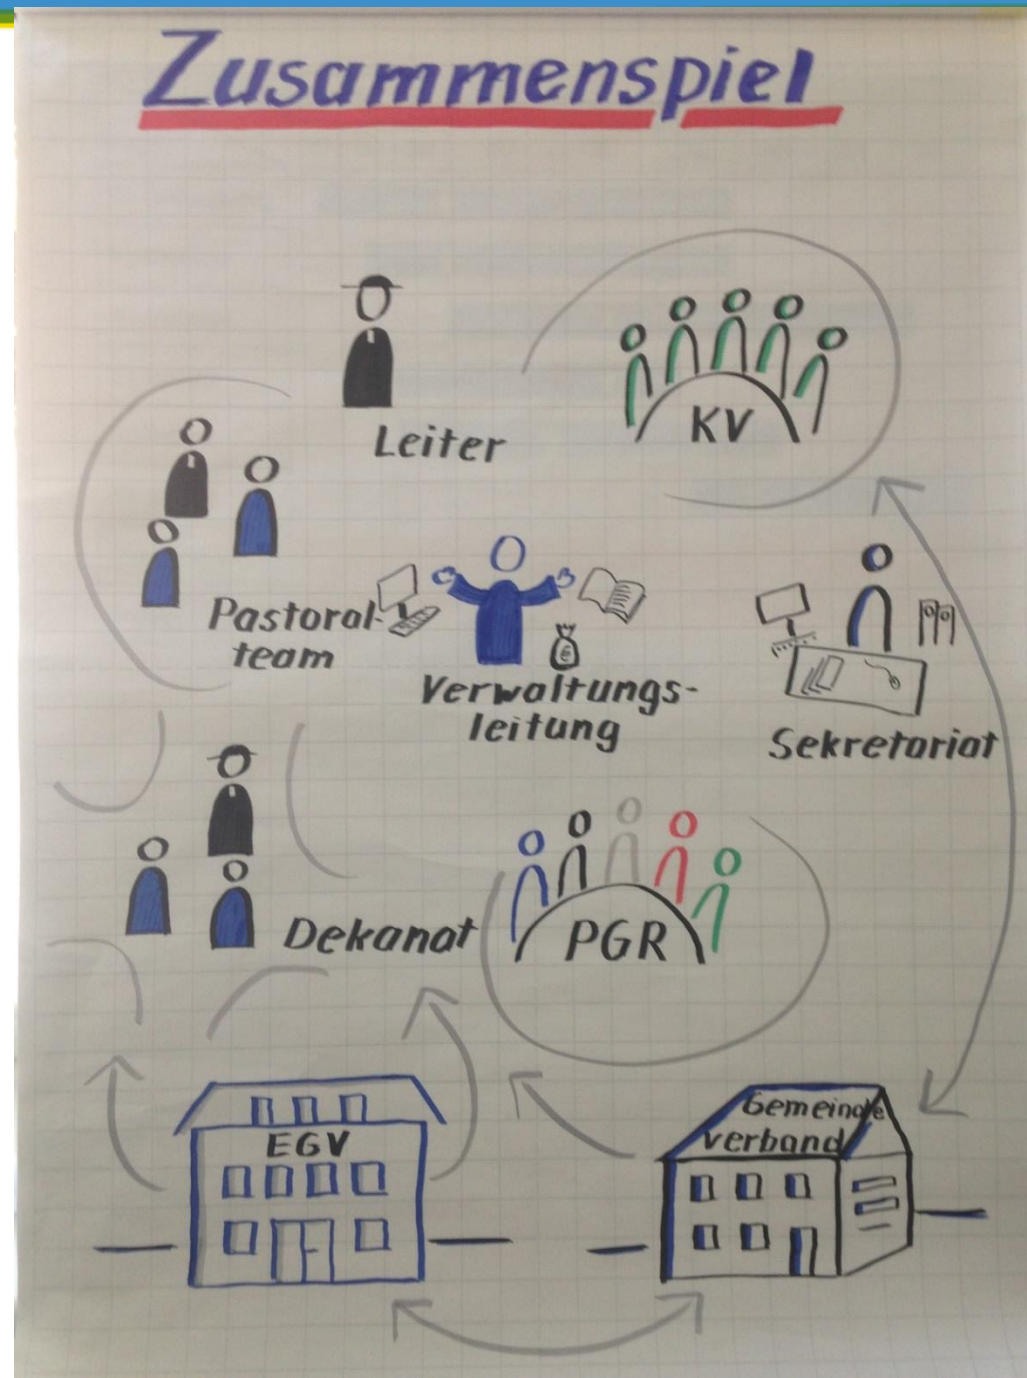 Zusammenspiel
Leiter
KV
Pastoral-
team
€
Verwaltungs-
leitung
Sekretariat
Dekanat
PGR
EGV
Gemeinde
verband